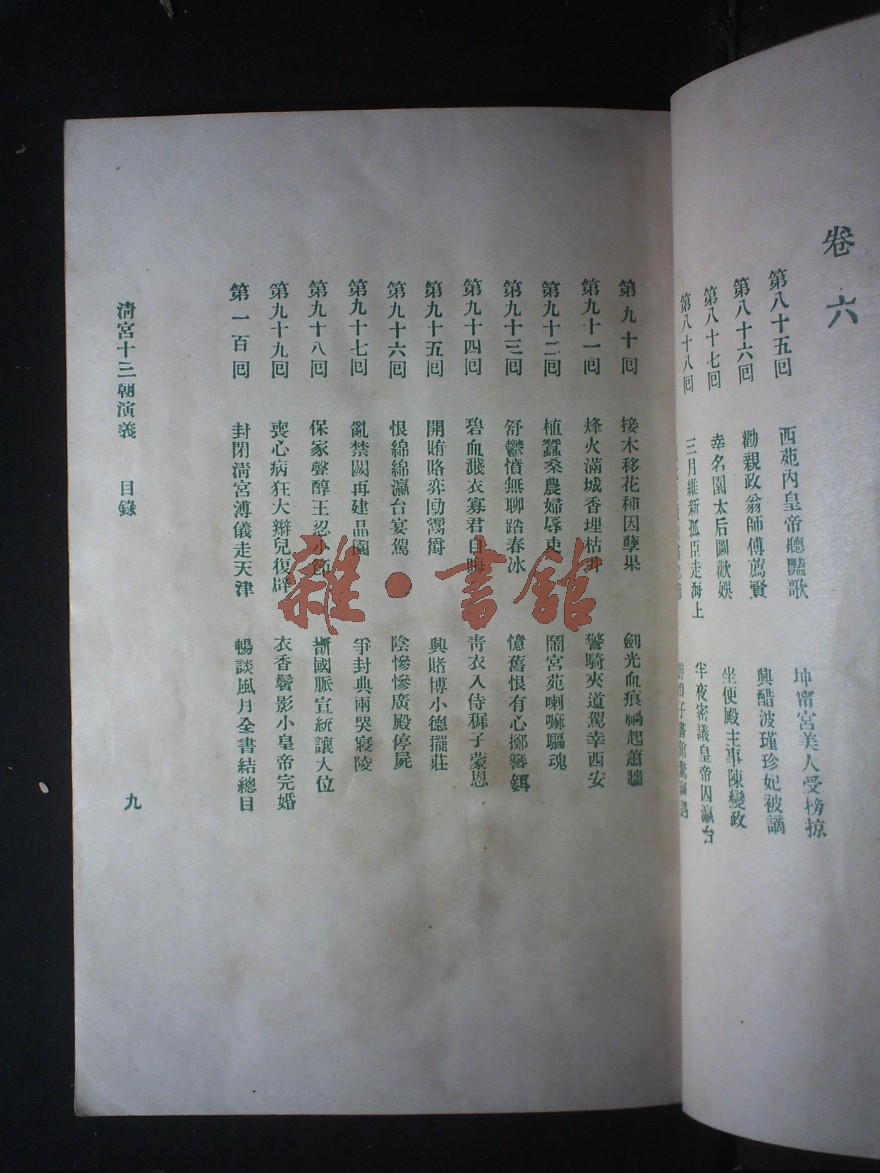 卷六
第八十五回 西苑內皇帝聽豔歌 坤甯宮美人受榜掠
第八十六回 勸親政翁師傅薦賢 興醋波瑾珍妃被謫
第八十七回 幸名園太后圖歡娛 坐便殿主事陳變政
第八十八回 三月維新孤臣走海上 半夜密議皇帝囚瀛台
第九十回 接木移花種因孽果 劍光血痕禍起蕭牆
第九十一回 烽火滿城香埋枯井 警騎夾道駕幸西安
第九十二回 植蠶桑農婦辱吏 鬧宮苑喇嘛驅魂
第九十三回 舒鬱憤無聊踏春冰 憶舊恨有心擲彎鉺
第九十四回 碧血濺衣寡君自晦 靑衣入侍穉子蒙恩
第九十五回 開賄賂弈劻鬻爵 興賭博小德擺莊
第九十六回 恨綿綿瀛台宴駕 陰慘慘廣殿停屍
第九十七回 亂禁闕再建品園 爭封典兩哭寢陵
第九十八回 保家聲醇王忍小 斷國脈宣統讓大位
第九十九回 喪心病狂大辮兒復辟 衣香鬢影小皇帝完婚
第一百回 封閉淸宮溥儀走天津 暢談風月全書結總目
淸宮十三朝演義 目錄 九
雜·書舘